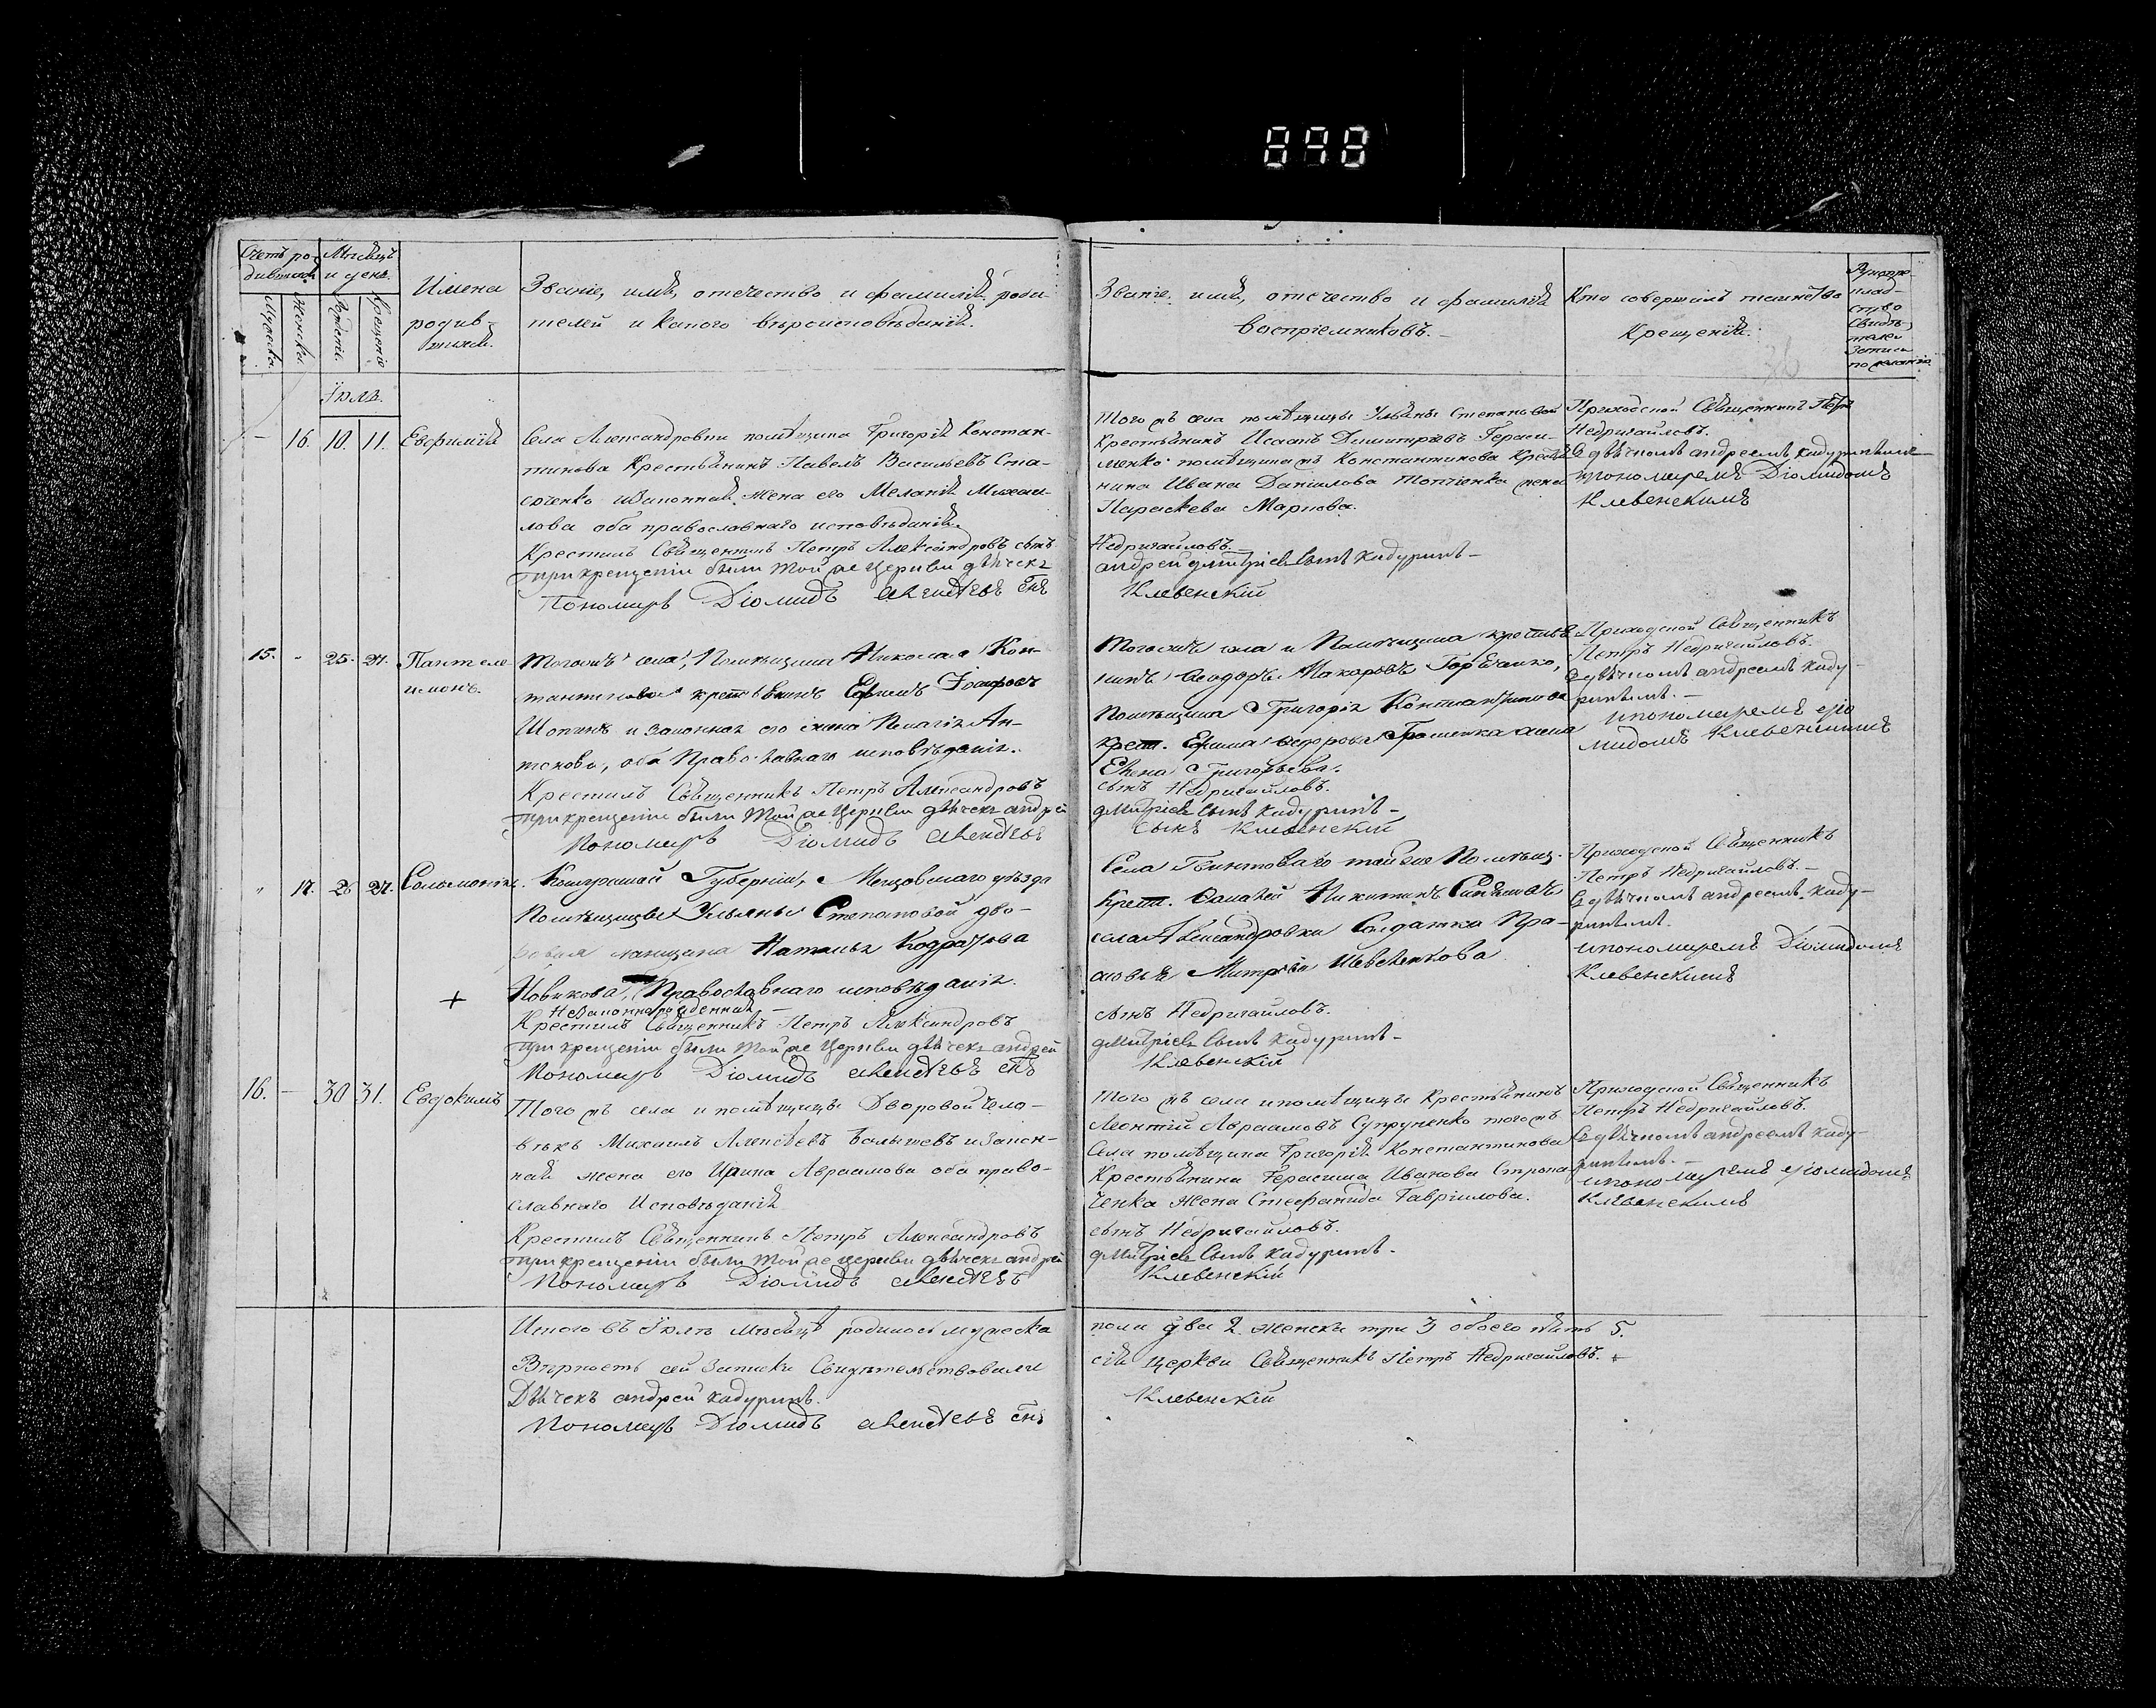 848
Счетъ ро-
дившихся
Мѣсяцъ
и день.
Мужеска.
Женска.
Рожденія.
Крещенія
Имена
родив-
шихся.
Званіе, имя, отечество и фамилія роди-
телей и какого вѣроисповѣданія.
Званіе, имя, отечество и фамилія
воспріемниковъ.
Кто совершалъ таинство
Крещенія.
Рукопри-
клад-
ство
Свидѣ-
телей
Записи
по желанію
Іюля.
- 16. 10. 11. Евфимія
Села Александровки помѣщика Григорія Констан-
тинова Крестьянинъ Павелъ Васильевъ
и законная жена его Меланія Михаи-
лова оба православнаго исповѣданія.
Крестилъ Священникъ Петръ Александровъ сынъ
При крещеніи были той же Церкви дьячекъ
Пономарь Діомидъ Алексѣевъ снъ
Того жъ села помѣщицы Ульяны Степановой
Крестьянинъ Исаакъ Димитріевъ Гераси-
менко помѣщика жъ Константинова Крестья-
нина Ивана Даніилова жена
Параскева Маркова.
Недригайловъ.
Андрей Дмитріевъ сынъ Кадуринъ-
Клевенскій
Приходской Священникъ Петръ
Недригайловъ.
Съ дьячкомъ Андреемъ Кадуринымъ
и пономаремъ Діомидомъ
Клевенскимъ
15. - 25. 27. Пантеле-
имонъ.
Того жъ села, Помѣщика Николая Кон-
стантинова крестьянинъ Ефимъ
и законная его жена Пелагія Ан-
тонова, оба Православнаго исповѣданія.
Крестилъ Священникъ Петръ Александровъ
При крещеніи были той же Церкви дьячекъ Андрей
Пономарь Діомидъ Алексѣевъ
Того жъ села и Помѣщика крестья-
нинъ Ѳеодоръ Макаровъ
Помѣщика Григорія Константинова
крест. Ефима Ѳедорова жена
Елена Григорьева.
сынъ Недригайловъ.
Дмитріевъ сынъ Кадуринъ-
сынъ Клевенскій
Приходской Священникъ
Петръ Недригайловъ.
Съ дьячкомъ Андреемъ Каду-
ринымъ.-
и пономаремъ Діо-
мидомъ Клевенскимъ
" 17. 26 27. Соломонія.
Калужской Губерніи, Мещовскаго уѣзда
Помѣщицы Ульяны Степановой дво-
ровая Наталья Кодратова
Новикова, Православнаго исповѣданія.
Незаконнорожденная -
+
Крестилъ Священникъ Петръ Александровъ
При крещеніи были той же Церкви дьячекъ Андрей
Пономарь Діомидъ Алексѣевъ снъ
Села той же Помѣщ.
крест. Никитинъ
села Александровки Солдатка Пра-
сковья Митріева Шевченкова.
сынъ Недригайловъ.
Дмитріевъ сынъ Кадуринъ-
Клевенскій
Приходской Священникъ
Петръ Недригайловъ.-
Съ дьячкомъ Андреемъ Каду-
ринымъ.
и пономаремъ Діомидомъ
Клевенскимъ
16. - 30 31. Евдокимъ
Того жъ села и помѣщицы Дворовой чело-
вѣкъ Михаилъ Алексѣевъ и закон-
ная жена его Ирина Авраамова оба право-
славнаго Исповѣданія
Крестилъ Священникъ Петръ Александровъ
При крещеніи были той же церкви дьячекъ Андрей
Пономарь Діомидъ Алексѣевъ
Того жъ села и помѣщицы Крестьянинъ
Леонтій Авраамовъ Супруненко того жъ
Села помѣщика Григорія Константинова
Крестьянина Герасима Иванова
жена Стефанида Гавріилова.
сынъ Недригайловъ.
Дмитріевъ сынъ Кадуринъ.
Клевенскій
Приходской Священникъ
Петръ Недригайловъ.
Съ дьячкомъ Андреемъ Каду-
ринымъ.-
и пономаремъ Діомидомъ
Клевенскимъ
Итого въ Іюлѣ мѣсяцѣ родилось мужеска
пола два 2. женска три 3 обоего пять 5.
Вѣрность сей записки Свидѣтельствовали
сія церкви Священникъ Петръ Недригайловъ.
Дьячекъ Андрей Кадуринъ.
Пономарь Діомидъ Алексѣевъ снъ
Клевенскій